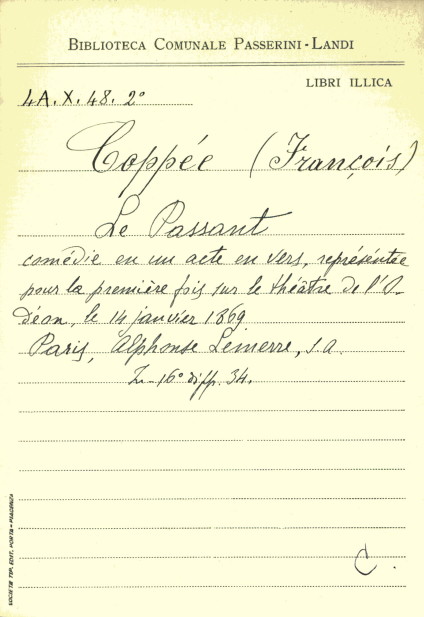 BIBLIOTECA COMUNALE PASSERINI-LANDI
LIBRI ILLICA
4A.X.48.2°
Coppée (François)
Le Passant
comédie en un acte en vers, représentée
pour la première fois sur le théâtre de l'O-
déon, le 14 janvier 1869
Paris, Alphonse Lemerre, s.a.
16° di pp. 34.
C.
SOCIETÀ TIP. EDIT. PORTA - PIACENZA